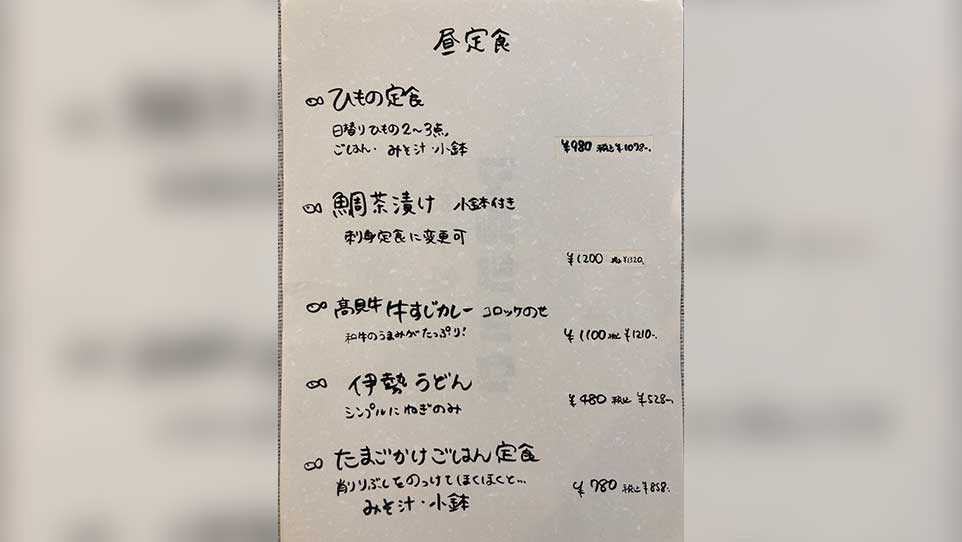 昼定食
ひもの定食
日替りひもの2〜3点。
ごはん・みそ汁・小鉢
¥980 税込¥1078-.
鯛茶漬け 小鉢付き
刺身定食に変更可
¥1200 税込¥1320.
高見牛 牛すじカレー コロッケのせ
和牛のうまみがたっぷり!
¥1100 税込¥1210-.
伊勢うどん
シンプルにねぎのみ
¥480 税込¥528-.
たまごかけごはん定食
削りぶしをのっけてほくほくと...
みそ汁・小鉢
¥780 税込¥858-.